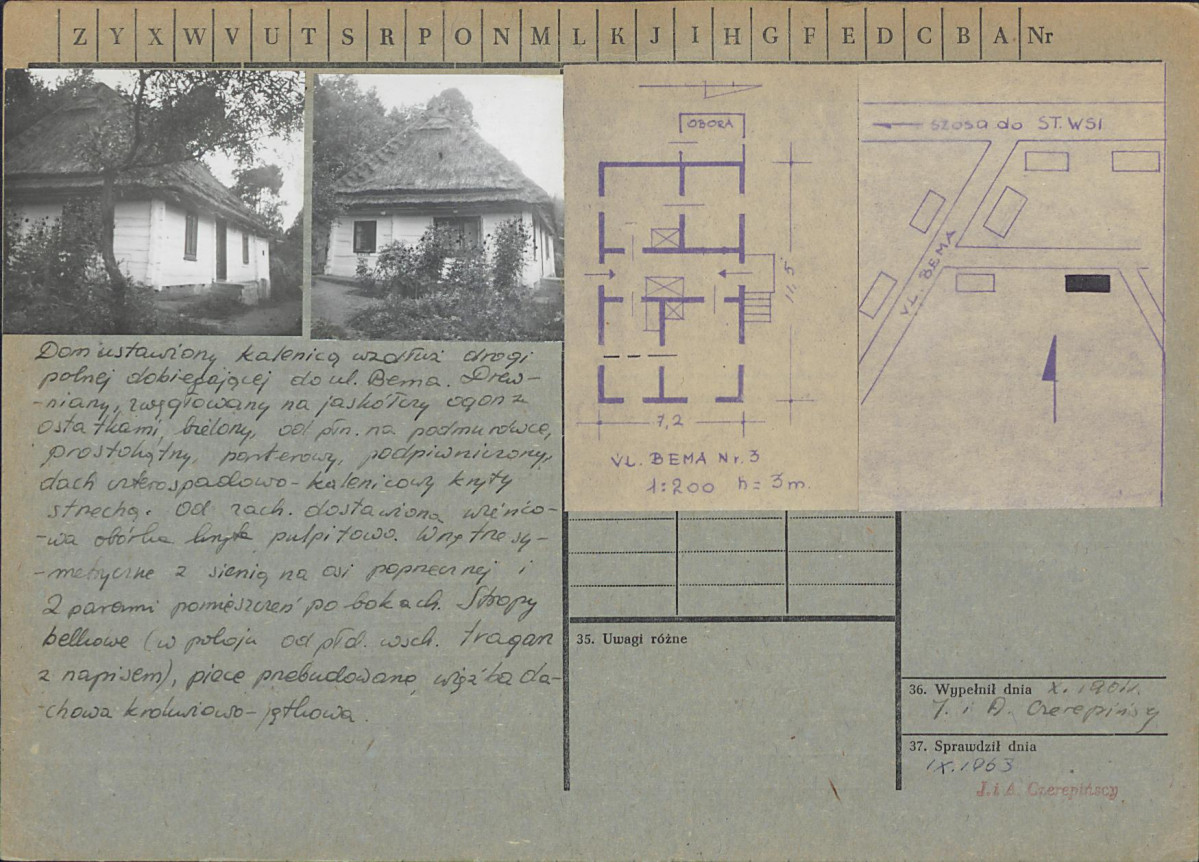 Z Y X W V U T S R P O N M L K J I H G F E D C B A Nr
OBORA
11,5
7,2
UL. BEMA Nr. 3
1:200 h = 3 m.
szosa do ST. WSI
UL. BEMA
Dom ustawiony kalenicą wzdłuż drogi
polnej dobiegającej do ul. Bema. Drew-
-niany, zwęgłowany na jaskółczy ogon z
ostatkami, bielony, od płn. na podmurówce,
prostokątny, parterowy, podpiwniczony,
dach czterospadowo-kalenicowy kryty
strzechą. Od zach. dostawiona wieńco-
-wa obórka kryta pulpitowo. Wnętrze sy-
-metryczne z sienią na osi poprzecznej i
2 parami pomieszczeń po bokach. Stropy
belkowe (w pokoju od płd. wsch. tragarz
z napisem), piece przebudowane, więźba da-
-chowa krokwiowo-jętkowa.
35. Uwagi różne
36. Wypełnił dnia X.
J. i A. Czerepińscy
37. Sprawdził dnia
IX.1963
J. i A. Czerepińscy